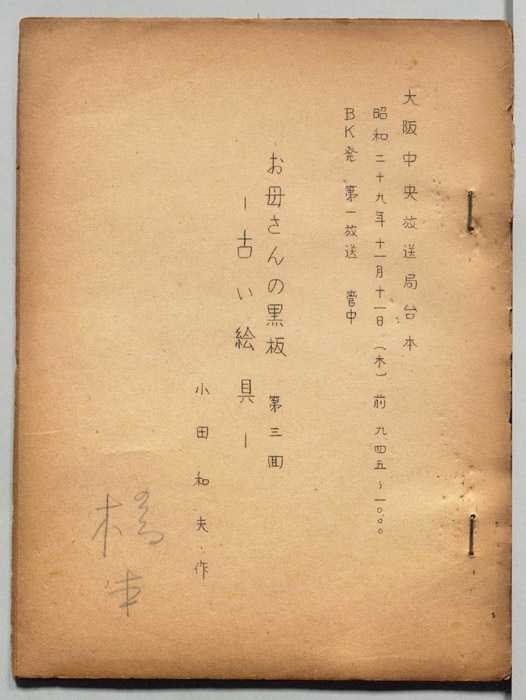 大阪中央放送局台本
昭和二十九年十一月十一日（木）前九四五〜一〇〇〇
BK発 第一放送 管中
お母さんの黒板 第三回
―古い絵具―
小田和夫・作
橋本